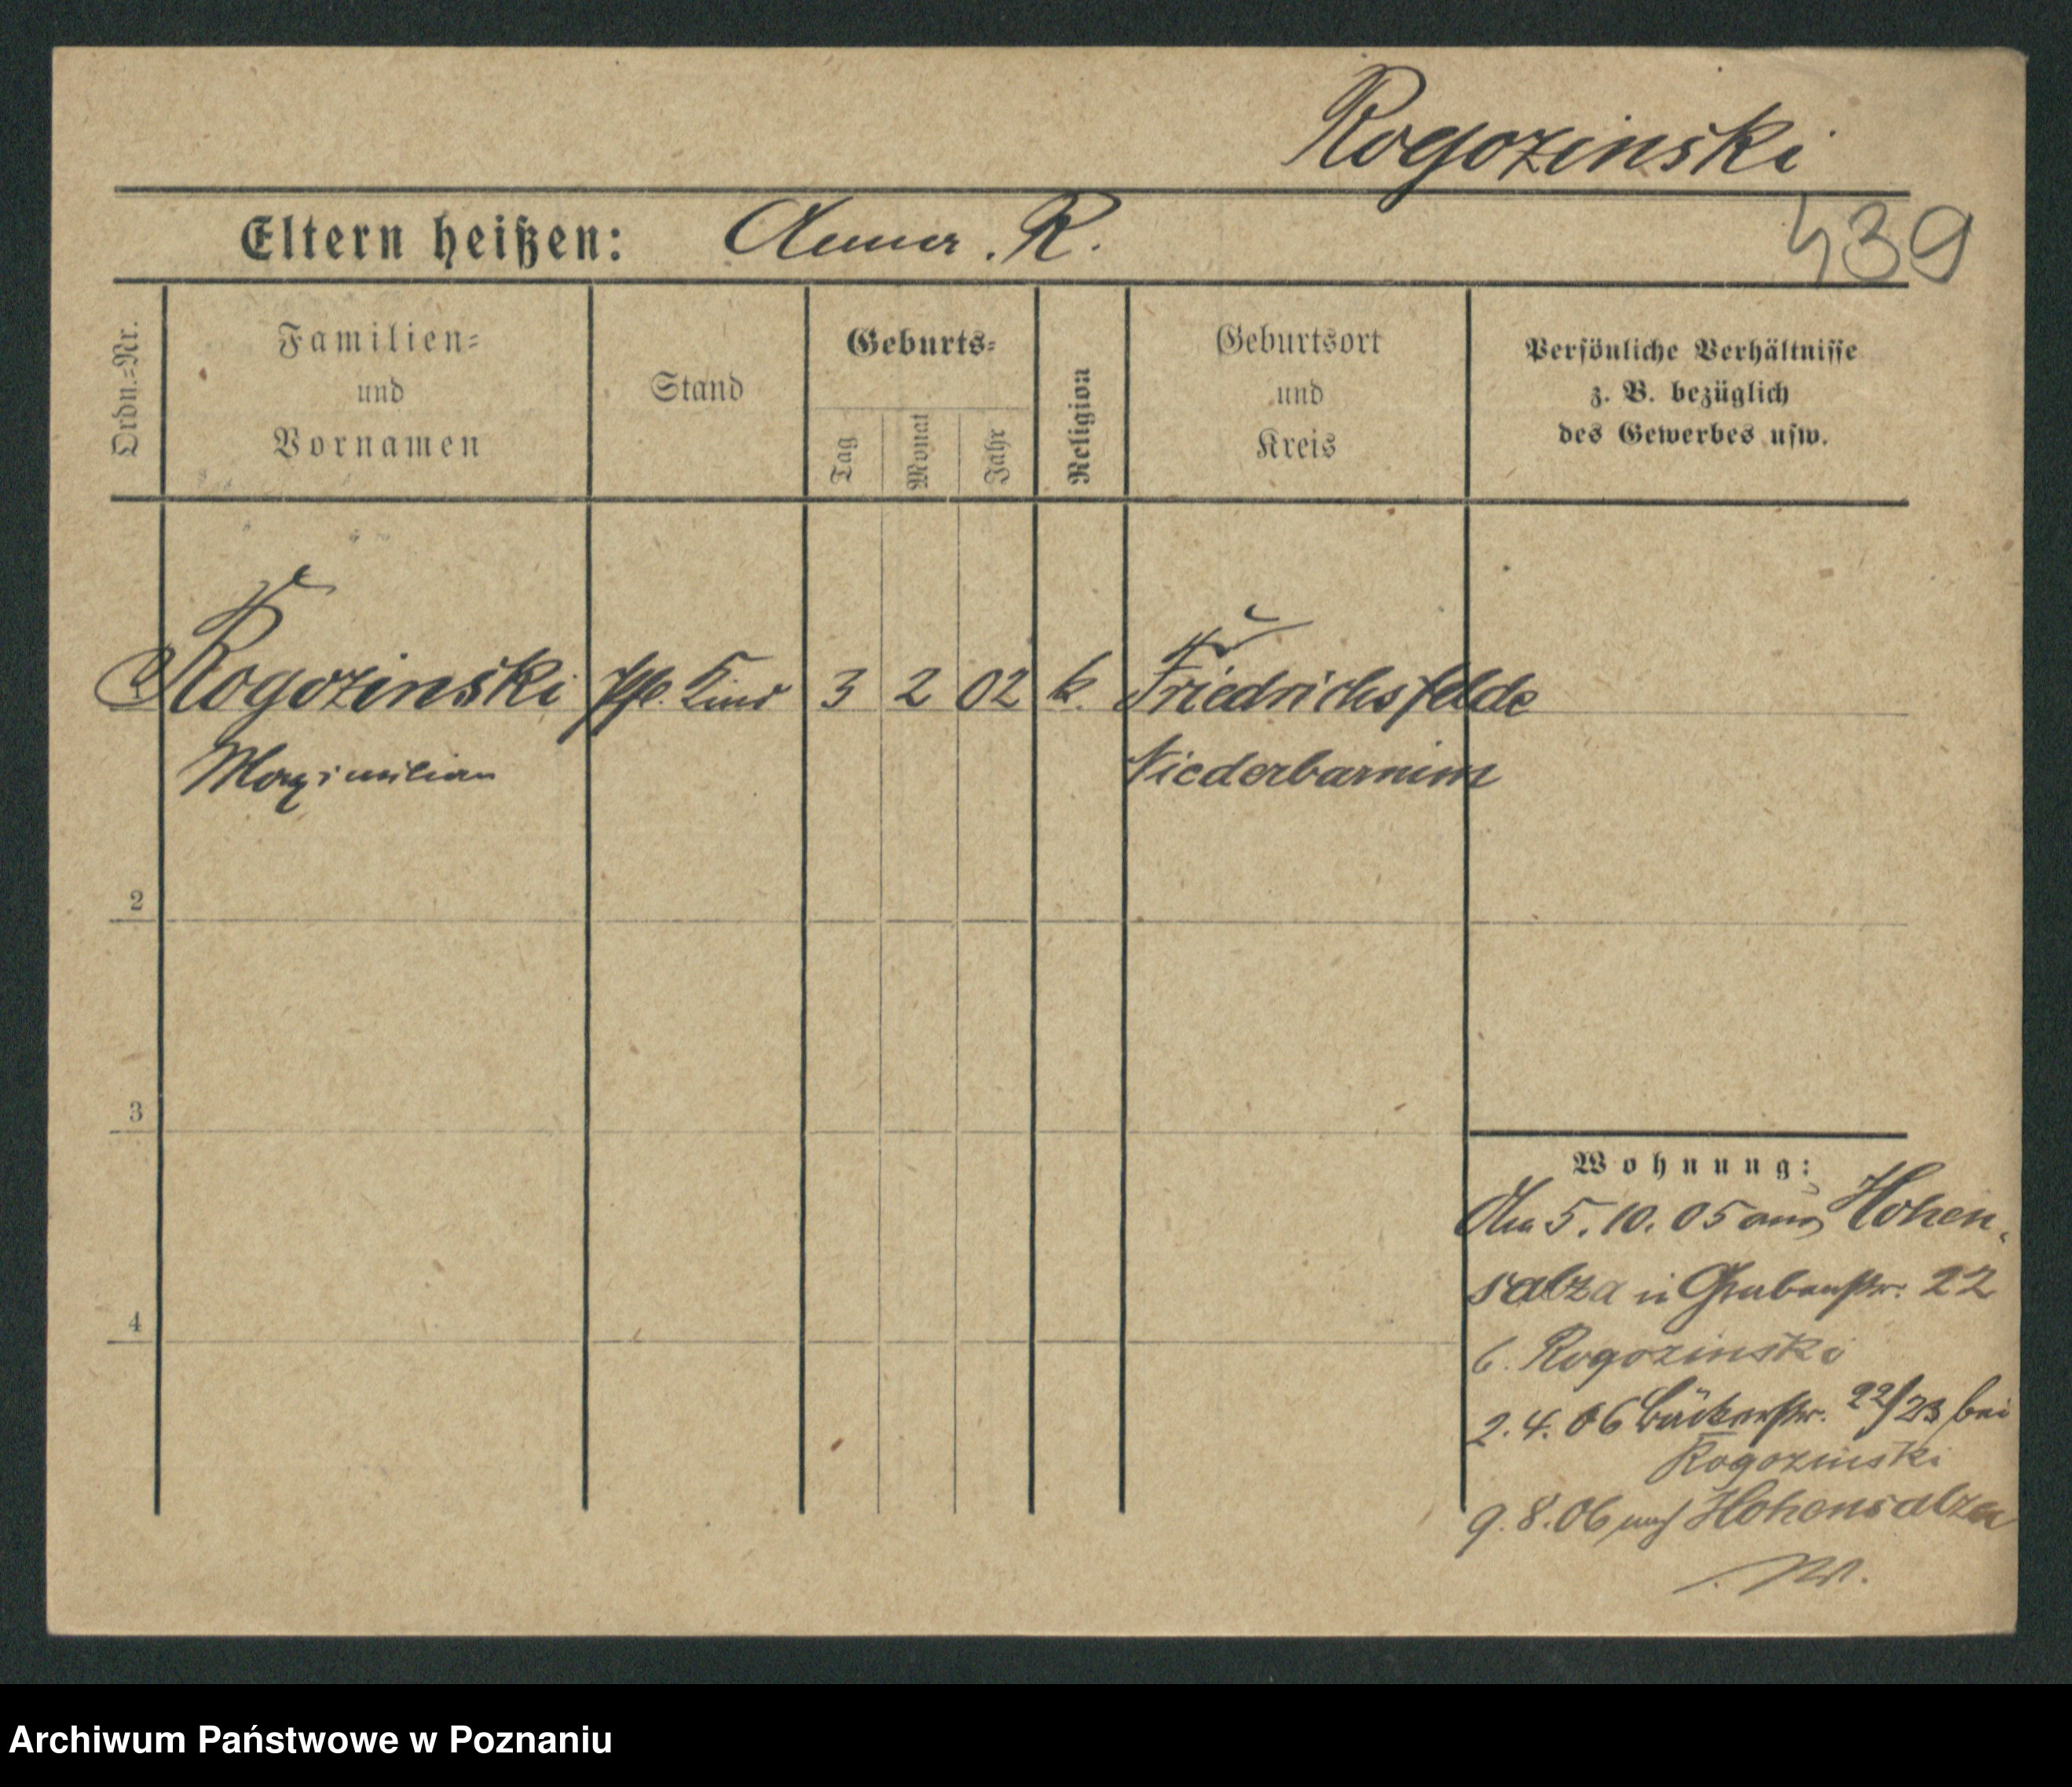 Rogozinski
Eltern heißen: Anna. R.
439
Ordn.-Nr.
Familien-
und
Vornamen
Stand
Geburts-
Tag
Monat
Jahr
Religion
Geburtsort
und
Kreis
Persönliche Verhältnisse
z. B. bezüglich
des Gewerbes usw.
Rogozinski Pfl. Kind 3 2 02 k. Friedrichsfelde
Maximilian Niederbarnim
2
3
4
Wohnung:
5. 10. 05 aus Hohen-
salza in Grabenstr. 22
b. Rogozinski
2. 4. 06 Bäckerstr. 22/23 bei
Rogozinski
9. 8. 06 nach Hohensalza
Archiwum Państwowe w Poznaniu